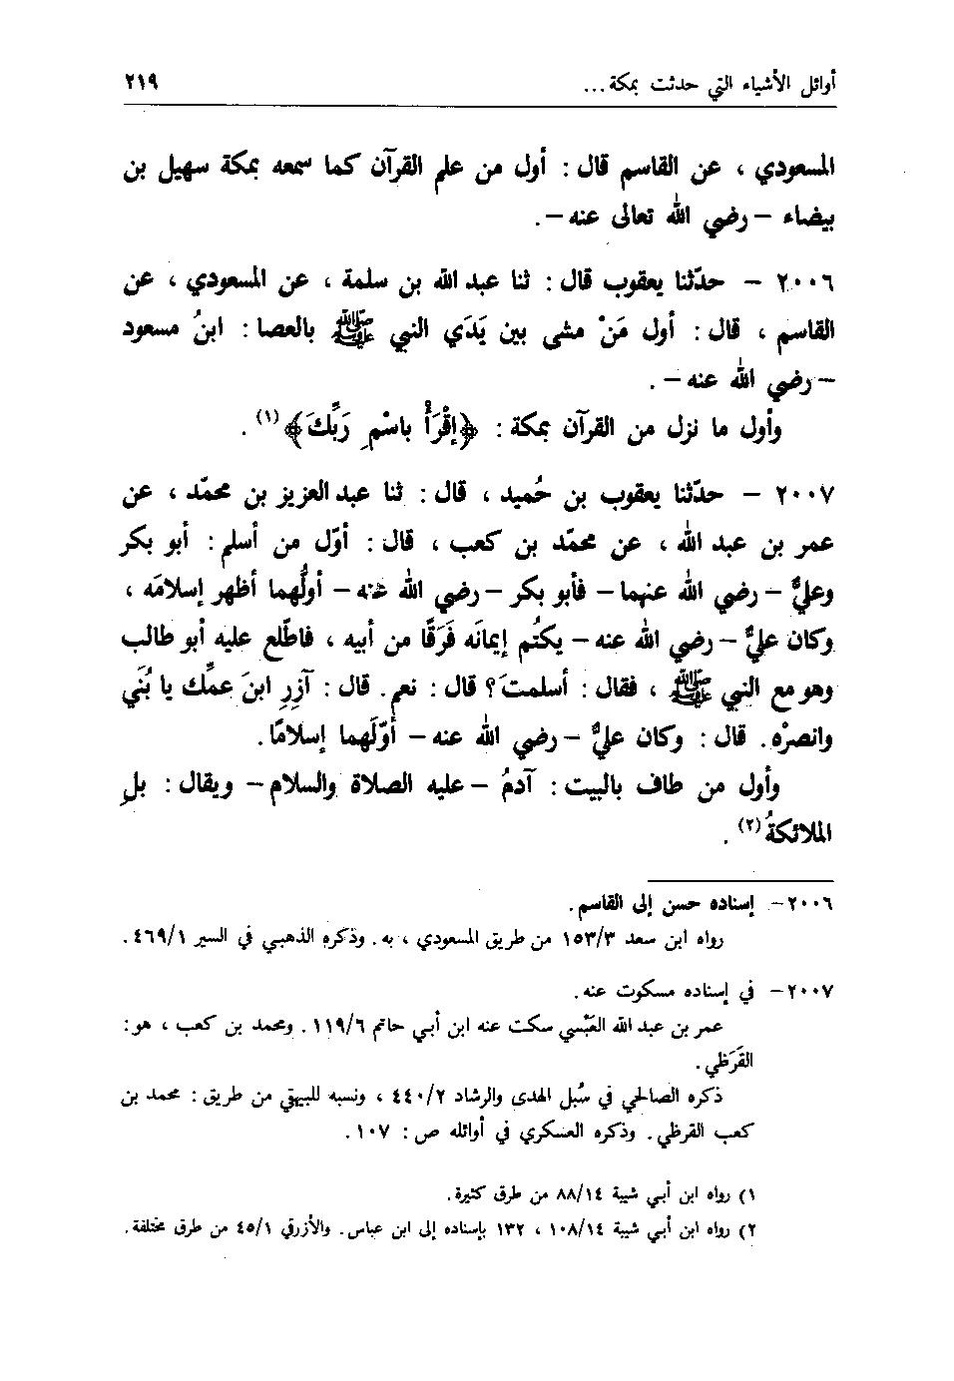 أوائل الأشياء التي حدثت بمكة... ٢١٩
المسعودي ، عن القاسم قال : أول من علم القرآن كما سمعه بمكة سهيل بن
بيضاء – رضي الله تعالى عنه – .
٢٠٠٦ – حدّثنا يعقوب قال : ثنا عبد الله بن سلمة ، عن المسعودي ، عن
القاسم ، قال : أول مَنْ مشى بين يَدَي النبي ﷺ بالعصا : ابنُ مسعود
– رضي الله عنه – .
وأول ما نزل من القرآن بمكة : ﴿إقْرَأْ باسْمِ رَبِّكَ﴾(١) .
٢٠٠٧ – حدّثنا يعقوب بن حُميد ، قال : ثنا عبد العزيز بن محمّد ، عن
عمر بن عبد الله ، عن محمّد بن كعب ، قال : أوّل من أسلم : أبو بكر
وعليٌّ – رضي الله عنهما – فأبو بكر – رضي الله عنه – أولُهما أظهر إسلامَه ،
وكان عليٌّ – رضي الله عنه – يكتُم إيمانَه فَرَقًا من أبيه ، فاطّلع عليه أبو طالب
وهو مع النبي ﷺ ، فقال : أسلمتَ؟ قال : نعم. قال : آزِرِ ابنَ عمِّك يا بُنَي
وانصرْه. قال : وكان عليٌّ – رضي الله عنه – أوّلَهما إسلامًا.
وأول من طاف بالبيت : آدمُ – عليه الصلاة والسلام – ويقال : بلِ
الملائكةُ(٢) .
٢٠٠٦ – إسناده حسن إلى القاسم.
رواه ابن سعد ١٥٣/٣ من طريق المسعودي ، به. وذكره الذهبي في السير ٤٦٩/١.
٢٠٠٧ – في إسناده مسكوت عنه.
عمر بن عبد الله العَبْسي سكت عنه ابن أبي حاتم ١١٩/٦. ومحمد بن كعب ، هو :
القَرَظي.
ذكره الصالحي في سُبل الهدى والرشاد ٤٤٠/٢ ، ونسبه للبيهقي من طريق : محمد بن
كعب القرظي. وذكره العسكري في أوائله ص : ١٠٧.
١) رواه ابن أبي شيبة ٨٨/١٤ من طرق كثيرة.
٢) رواه ابن أبي شيبة ١٠٨/١٤ ، ١٣٢ بإسناده إلى ابن عباس. والأزرقي ٤٥/١ من طرق مختلفة.